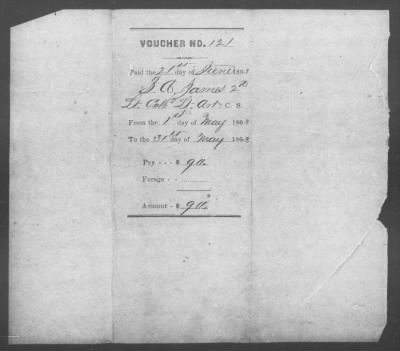 VOUCHER NO. 121
Paid the 21st day of June 186
S. A. James 2nd
Lt. Cobb's Lt. Art C. S.
From the 1st day of May 1863
To the 31st day of May 1863
Pay - - - $ 90.
Forage - -
Amount - $ 90.